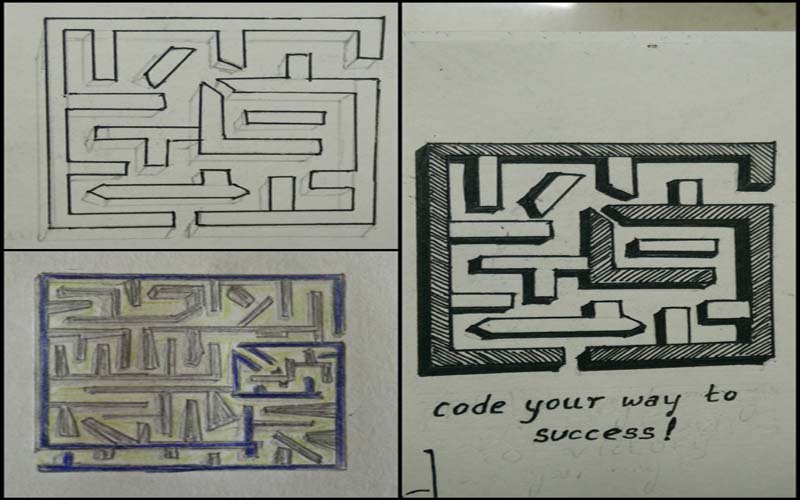 code your way to
success!